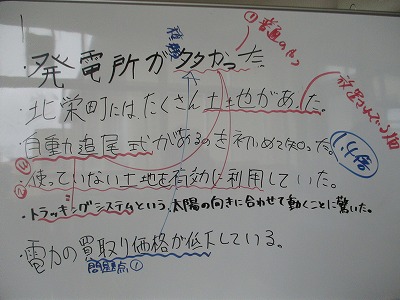 ・発電所が多かった。
種類
①普通のやつ
・北栄町には、たくさん土地があった。
放置されている畑
・自動追尾式があるのを初めて知った。
1.4倍
③
②
・使っていない土地を有効に利用していた。
・トラッキングシステムという、太陽の向きに合わせて動くことに驚いた。
・電力の買取り価格が低下している。
問題点①